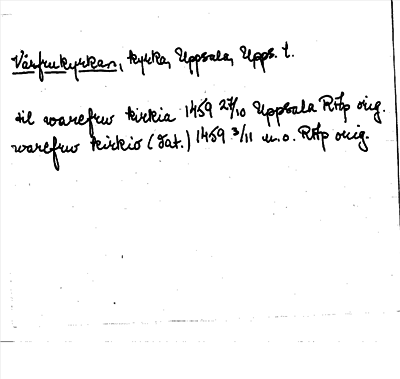 Vårfrukyrkan, kyrka, Uppsala, Upps. l.
til warefrw kirkia 1459 27/10 Uppsala RAp orig.
warefrw kirkio (dat.) 1459 3/11 u.o. RAp orig.